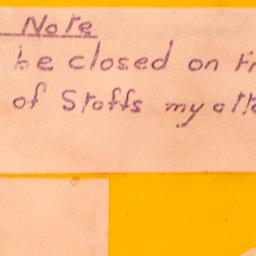 Note
be closed on Fr
of Staffs my atte